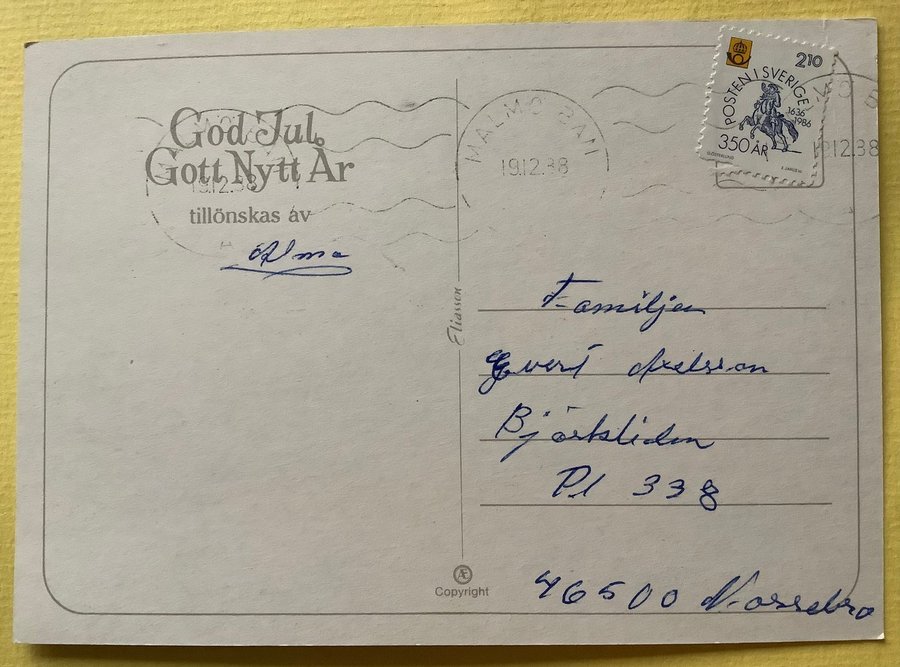 God Jul
Gott Nytt År
tillönskas av
Alma
MALMÖ BAN
19.12.88
19.12.88
2.12.38
210
POSTEN I SVERIGE
1636
1986
350 ÅR
Eliasson
Familjen
Evert Axelsson
Björkliden
Pl 338
46500 Nossebro
Æ
Copyright